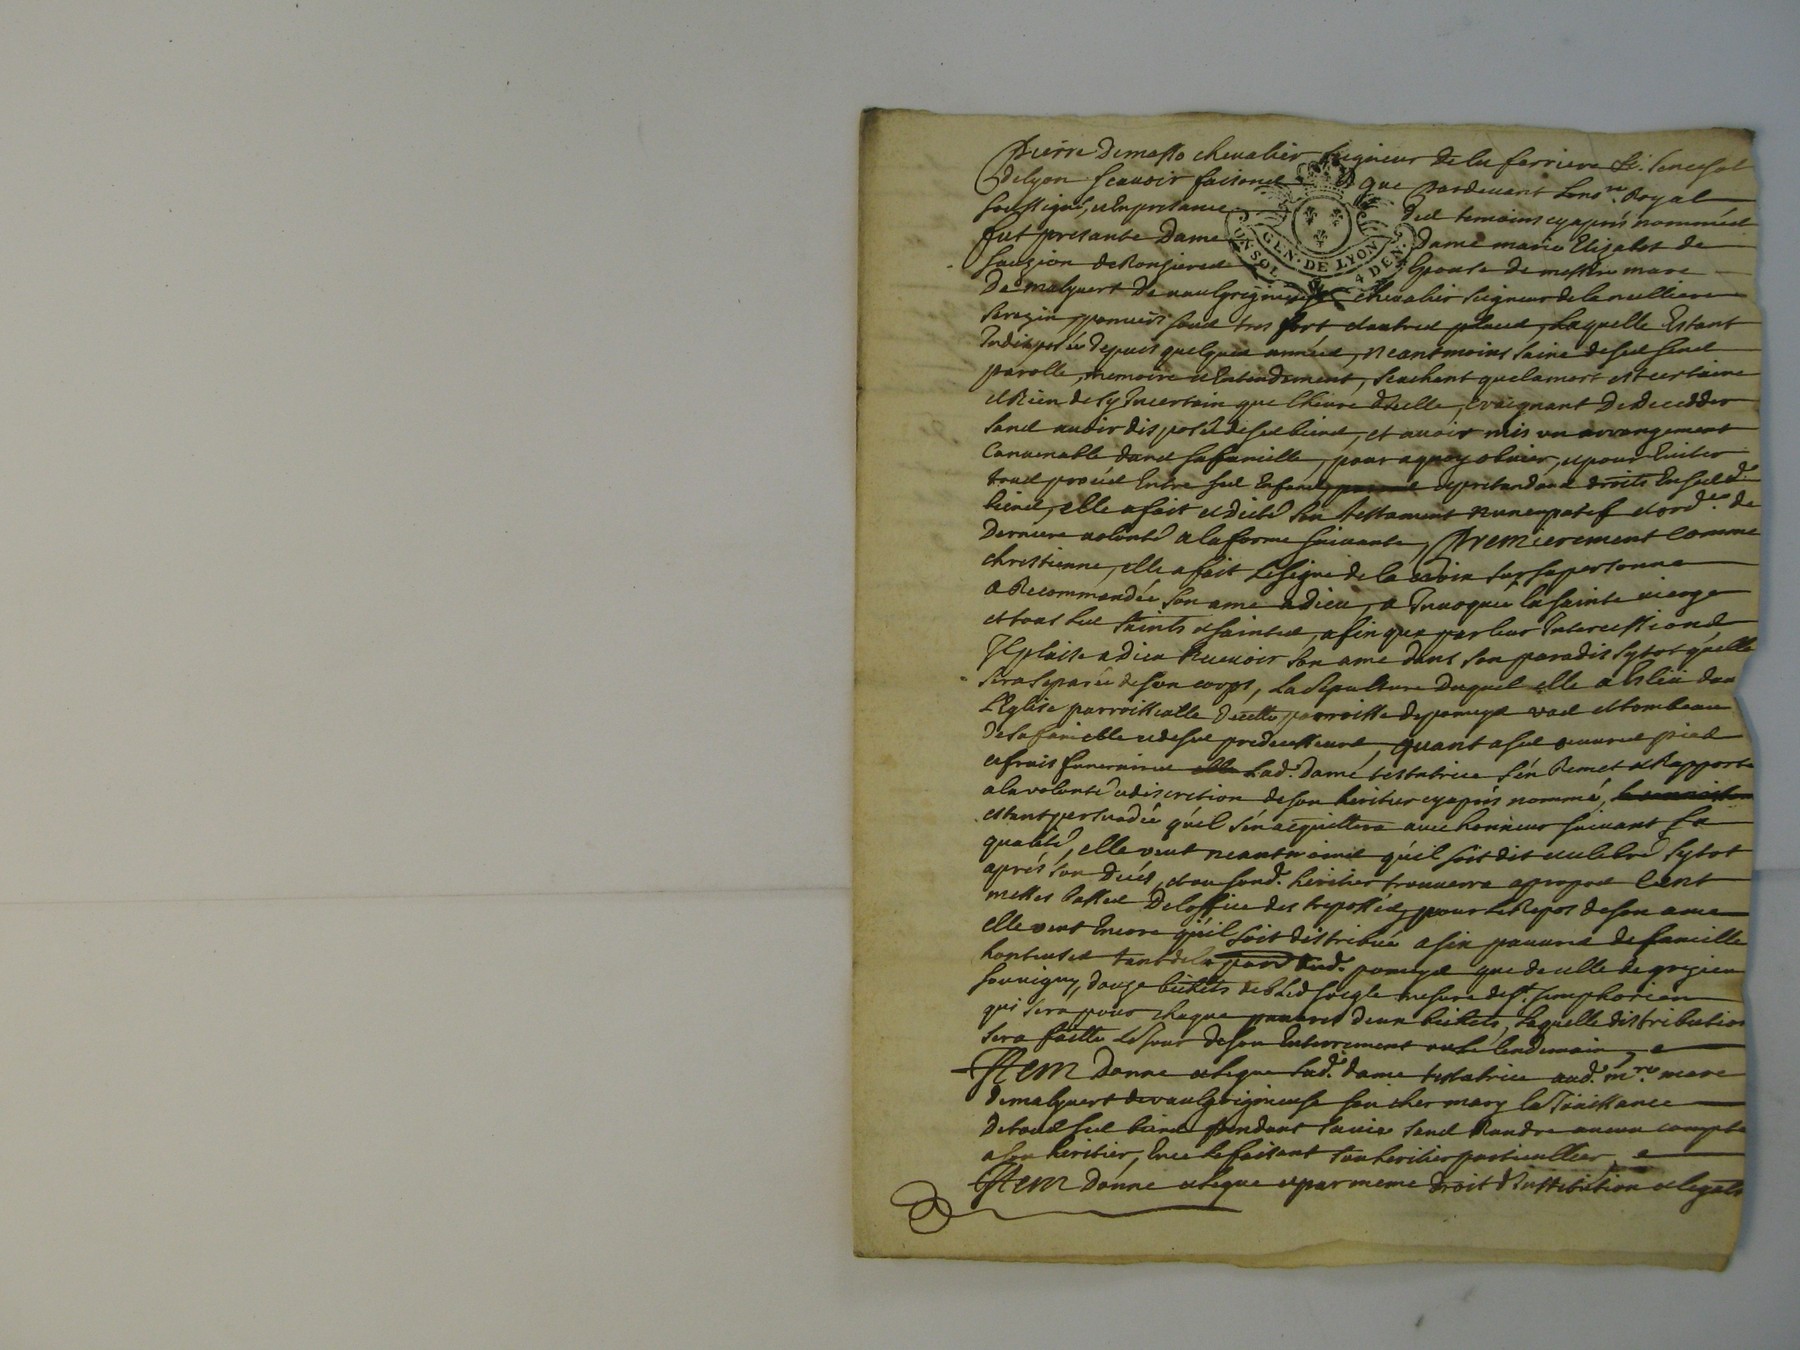 Pierre Demasso chevalier seigneur de la ferriere Se. Senechal
de lyon scavoir faisons que pardevant le no.re Royal
soussigné, et En presance des temoins cy après nommés
fut presante Dame Dame marie Elizabet de
sauzion de Ronsieres Epouse de messire marc
De malyvert De vaulgrigneuse chevalier seigneur de la
serezin pomeis sans tres fort et autres places, Laquelle Estant
Indisposée depuis quelques années, neantmoins saine de ses sens
parolle, memoire et Entendement, scachant que la mort est certaine
et Rien de sy Incertain que l'heure d'icelle, craignant De Decedder
sans avoir disposé de ses biens, et avoir mis un arrangement
Convenable dans sa famille, pour a quoy obvier, et pour Eviter
tous procés Entre ses Enfans, et pretandans droits En ses d.
biens, elle a fait et dicté son testament nuncupatif et ord.ce de
Derniere volonté a la forme suivante, Premierement Comme
christienne, elle a fait le signe de la croix sur sa personne
a Recommandée son ame a dieu, a Invoquée la sainte vierge
et tous les saints et saintes, afin que par leur Intercessions
Il plaise a Dieu Recevoir son ame dans son paradis sytot qu'elle
sera separée de son corps, La sepulture duquel elle a Esleu dans
L'Eglise parroissialle de cette parroisse de pomeys et tombeau
De sa famille et de ses predecesseurs, quant a ses œuvres pies
et frais funeraires elle Lad. Dame testatrice s'én Remet et Rapporte
a la volonté et discretion de son héritier cy aprés nommé,
estant persuadée qu'el s'én acquittera avec honneur suivant sa
qualité, elle veut neantmoins qu'il soit dit et celebré sytot
aprés son decés, et ou sond. héritier trouvera a propos Cent
messes basses De l'office des trepassés, pour le Repos de son ame
elle veut Encore qu'il soit distribué a six pauvres de famille
honteuses tant de la par lad. pomeys que de celle de grezieu
souvigny, douze bichets de bled soigle mesure de st. simphorien
qui sera pour chaque pauvres deux bichets, Laquelle distribution
sera faitte Le Jour de son Enterrement ou le lendemain,
Item Donne et legue Lad. dame testatrice aud. m.re marc
de malyvert de vaulgrigneuse son cher mary la Jouissance
De tous ses biens pendant sa vie sans Randre aucun compte
a son héritier, En ce le faisant son heritier particullier,
Item Donne et legue et par meme droit d'institution et legats
GEN. DE LYON
UN SOL 4 DEN.